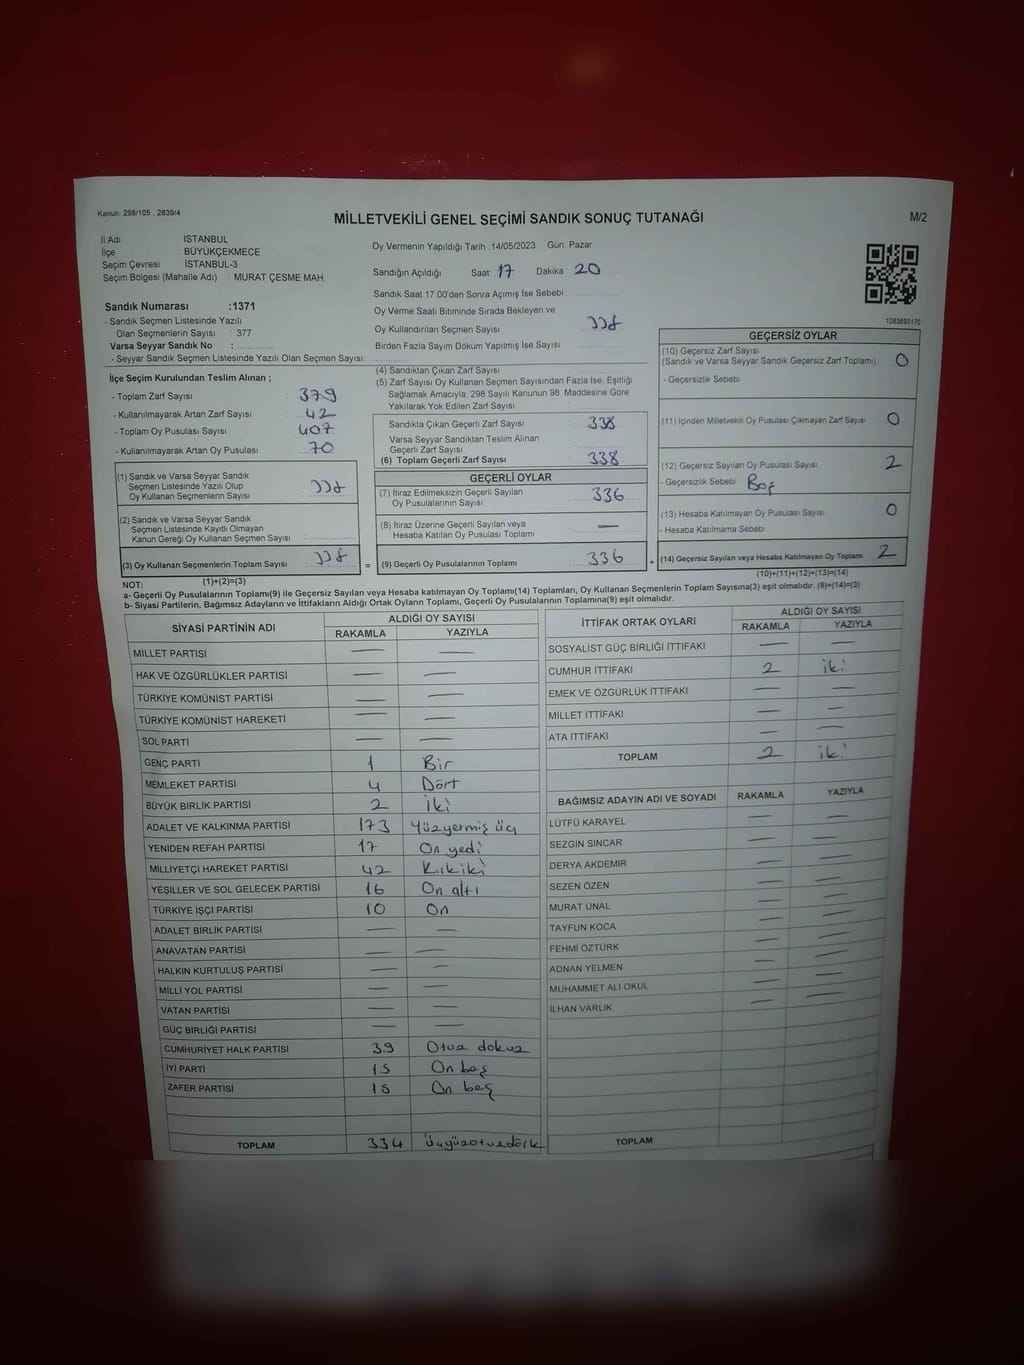 Kanun: 298/105 , 2839/4
MİLLETVEKİLİ GENEL SEÇİMİ SANDIK SONUÇ TUTANAĞI
M/2
İl Adı : İSTANBUL
İlçe : BÜYÜKÇEKMECE
Seçim Çevresi : İSTANBUL-3
Seçim Bölgesi (Mahalle Adı) : MURAT ÇESME MAH.
Sandık Numarası :1371
- Sandık Seçmen Listesinde Yazılı
Olan Seçmenlerin Sayısı : 377
Varsa Seyyar Sandık No :
- Seyyar Sandık Seçmen Listesinde Yazılı Olan Seçmen Sayısı:
Oy Vermenin Yapıldığı Tarih :14/05/2023 Gün: Pazar
Sandığın Açıldığı Saat: 17 Dakika 20
Sandık Saat 17:00'den Sonra Açımış İse Sebebi :
Oy Verme Saati Bitiminde Sırada Bekleyen ve
Oy Kullandırılan Seçmen Sayısı : 338
Birden Fazla Sayım Döküm Yapılmış İse Sayısı :
1083693170
İlçe Seçim Kurulundan Teslim Alınan ;
- Toplam Zarf Sayısı : 379
- Kullanılmayarak Artan Zarf Sayısı : 42
- Toplam Oy Pusulası Sayısı : 407
- Kullanılmayarak Artan Oy Pusulası : 70
(1) Sandık ve Varsa Seyyar Sandık
Seçmen Listesinde Yazılı Olup
Oy Kullanan Seçmenlerin Sayısı : 338
(2) Sandık ve Varsa Seyyar Sandık
Seçmen Listesinde Kayıtlı Olmayan
Kanun Gereği Oy Kullanan Seçmen Sayısı :
(3) Oy Kullanan Seçmenlerin Toplam Sayısı : 338
(1)+(2)=(3)
(4) Sandıktan Çıkan Zarf Sayısı :
(5) Zarf Sayısı Oy Kullanan Seçmen Sayısından Fazla İse, Eşitliği
Sağlamak Amacıyla; 298 Sayılı Kanunun 98. Maddesine Göre
Yakılarak Yok Edilen Zarf Sayısı :
Sandıkta Çıkan Geçerli Zarf Sayısı : 338
Varsa Seyyar Sandıktan Teslim Alınan
Geçerli Zarf Sayısı :
(6) Toplam Geçerli Zarf Sayısı : 338
GEÇERLİ OYLAR
(7) İtiraz Edilmeksizin Geçerli Sayılan
Oy Pusulalarının Sayısı : 336
(8) İtiraz Üzerine Geçerli Sayılan veya
Hesaba Katılan Oy Pusulası Toplamı : —
= (9) Geçerli Oy Pusulalarının Toplamı : 336 +
GEÇERSİZ OYLAR
(10) Geçersiz Zarf Sayısı
(Sandık ve Varsa Seyyar Sandık Geçersiz Zarf Toplamı) : 0
- Geçersizlik Sebebi :
(11) İçinden Milletvekili Oy Pusulası Çıkmayan Zarf Sayısı : 0
(12) Geçersiz Sayılan Oy Pusulası Sayısı : 2
- Geçersizlik Sebebi : Boş
(13) Hesaba Katılmayan Oy Pusulası Sayısı : 0
- Hesaba Katılmama Sebebi :
(14) Geçersiz Sayılan veya Hesaba Katılmayan Oy Toplamı : 2
(10)+(11)+(12)+(13)=(14)
NOT:
a- Geçerli Oy Pusulalarının Toplamı(9) ile Geçersiz Sayılan veya Hesaba katılmayan Oy Toplamı(14) Toplamları, Oy Kullanan Seçmenlerin Toplam Sayısına(3) eşit olmalıdır. (9)+(14)=(3)
b- Siyasi Partilerin, Bağımsız Adayların ve İttifakların Aldığı Ortak Oyların Toplamı, Geçerli Oy Pusulalarının Toplamına(9) eşit olmalıdır.
SİYASİ PARTİNİN ADI ALDIĞI OY SAYISI
RAKAMLA YAZIYLA
MİLLET PARTİSİ — —
HAK VE ÖZGÜRLÜKLER PARTİSİ — —
TÜRKİYE KOMÜNİST PARTİSİ — —
TÜRKİYE KOMÜNİST HAREKETİ — —
SOL PARTİ — —
GENÇ PARTİ 1 Bir
MEMLEKET PARTİSİ 4 Dört
BÜYÜK BİRLİK PARTİSİ 2 İki
ADALET VE KALKINMA PARTİSİ 173 Yüzyetmiş üç
YENİDEN REFAH PARTİSİ 17 On yedi
MİLLİYETÇİ HAREKET PARTİSİ 42 Kırkiki
YEŞİLLER VE SOL GELECEK PARTİSİ 16 On altı
TÜRKİYE İŞÇİ PARTİSİ 10 On
ADALET BİRLİK PARTİSİ — —
ANAVATAN PARTİSİ — —
HALKIN KURTULUŞ PARTİSİ — —
MİLLİ YOL PARTİSİ — —
VATAN PARTİSİ — —
GÜÇ BİRLİĞİ PARTİSİ — —
CUMHURİYET HALK PARTİSİ 39 Otuz dokuz
İYİ PARTİ 15 On beş
ZAFER PARTİSİ 15 On beş
TOPLAM 334 üçyüzotuzdört
İTTİFAK ORTAK OYLARI ALDIĞI OY SAYISI
RAKAMLA YAZIYLA
SOSYALİST GÜÇ BİRLİĞİ İTTİFAKI — —
CUMHUR İTTİFAKI 2 iki
EMEK VE ÖZGÜRLÜK İTTİFAKI — —
MİLLET İTTİFAKI — —
ATA İTTİFAKI — —
TOPLAM 2 iki
BAĞIMSIZ ADAYIN ADI VE SOYADI RAKAMLA YAZIYLA
LÜTFÜ KARAYEL — —
SEZGİN SİNCAR — —
DERYA AKDEMİR — —
SEZEN ÖZEN — —
MURAT ÜNAL — —
TAYFUN KOCA — —
FEHMİ ÖZTÜRK — —
ADNAN YELMEN — —
MUHAMMET ALİ OKUL — —
İLHAN VARLIK — —
TOPLAM